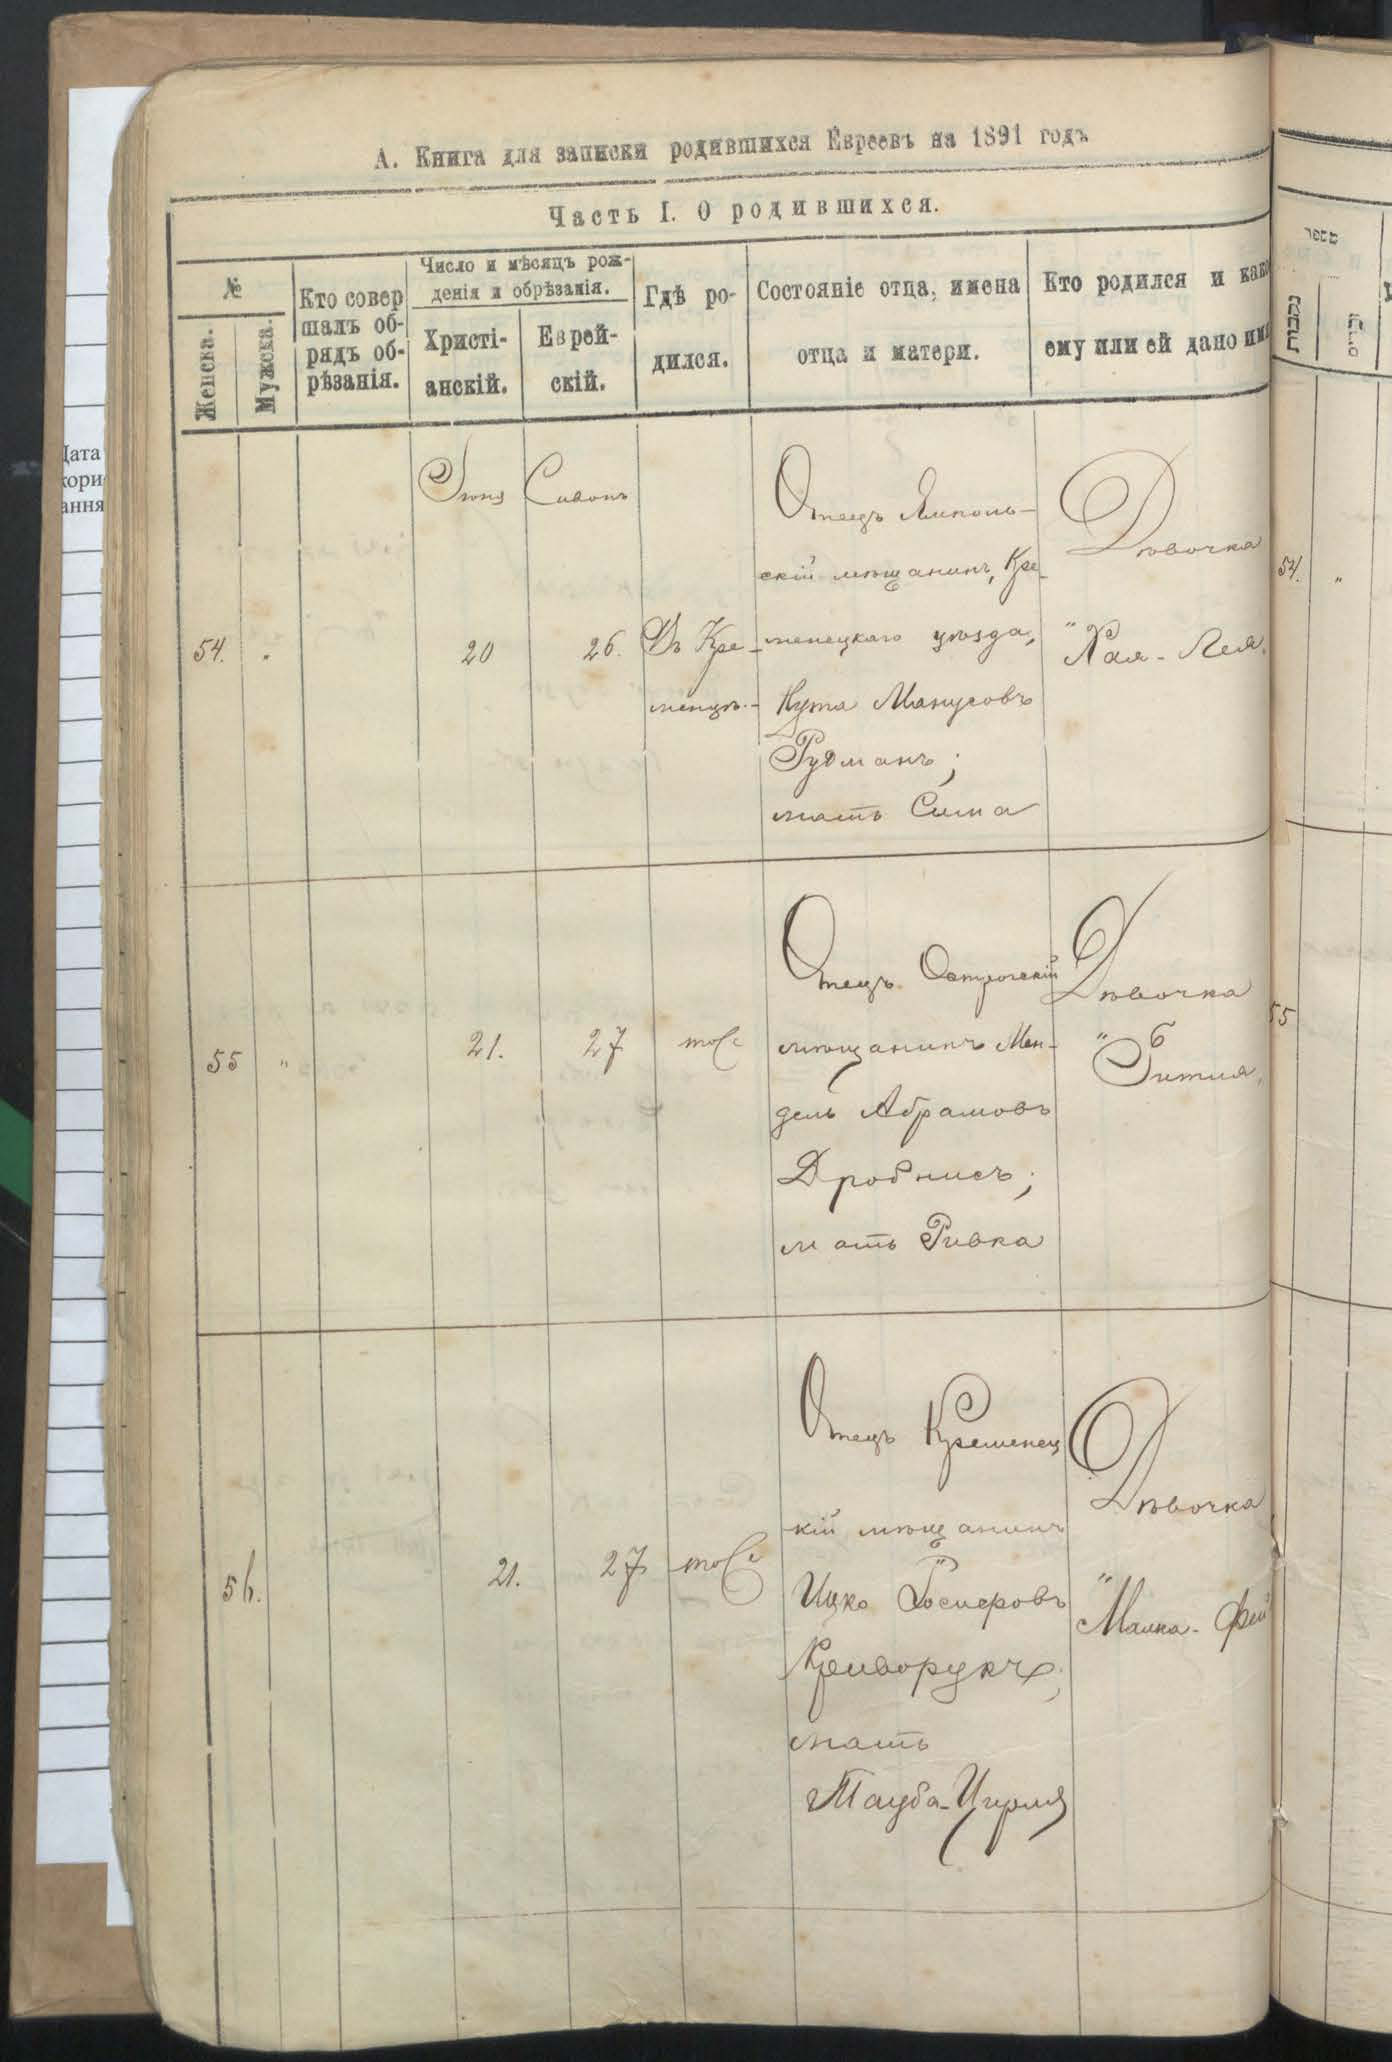 А. Книга для записки родившихся Евреевъ на 1891 годъ
Часть I. О родившихся.
№
Женска.
Мужска.
Кто совер
шалъ об-
рядъ об-
рѣзанія.
Число и мѣсяцъ рож-
денія и обрѣзанія.
Христі-
анскій.
Еврей-
скій.
Гдѣ ро-
дился.
Состояніе отца, имена
отца и матери.
Кто родился и како
ему или ей дано имя
54.
"
Іюня
20
Сивонъ
26.
Въ Кре-
менцѣ.
Отецъ Ямполь-
скій мѣщанинъ, Кре-
менецкаго уѣзда,
Нута Манусовъ
Рудманъ;
мать Сима
Дѣвочка
"Хая-Лея.
55
"
21.
27
тоже
Отецъ Острогскій
мѣщанинъ Мен-
дель Абрамовъ
Дробнисъ;
мать Ривка
Дѣвочка
"Гитля,
56.
21.
27
тоже
Отецъ Кременец
кій мѣщанинъ
Ицко
Криворукъ;
мать
Тауба-Цирля
Дѣвочка
"Малка-Фей
מספר
נקבות
זכרים
54.
"
55
Дата
кори
ання